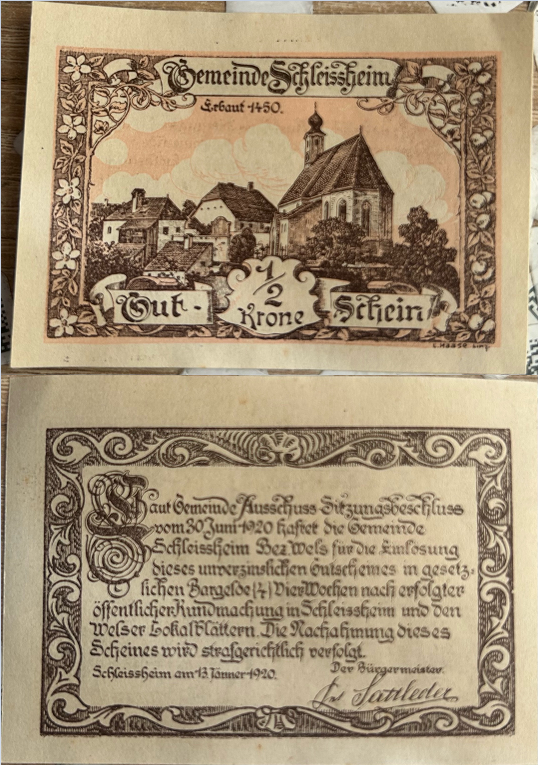 Gemeinde Schleissheim
Erbaut 1450.
1/2
Krone
Gut-
Schein
Laut Gemeinde Ausschuss Sitzungsbeschluss
vom 30 Juni 1920 haftet die Gemeinde
Schleissheim Bez Wels für die Einlösung
dieses unverzinslichen Gutscheines in gesetz-
lichen Bargelde (4) Vier Wochen nach erfolgter
öffentlicher Kundmachung in Schleissheim und den
Welser Lokalblättern. Die Nachahmung dieses
Scheines wird strafgerichtlich verfolgt.
Schleissheim am 13. Jänner 1920.
Der Bürgermeister.
Sattleder